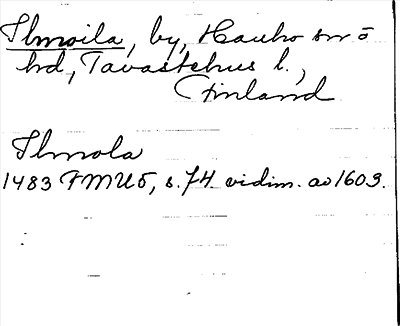 Ilmoila, by, Hauho sn ö
hd, Tavastehus l.,
Finland
Ilmola
1483 FMU 5, s. 74. vidim. av 1603.